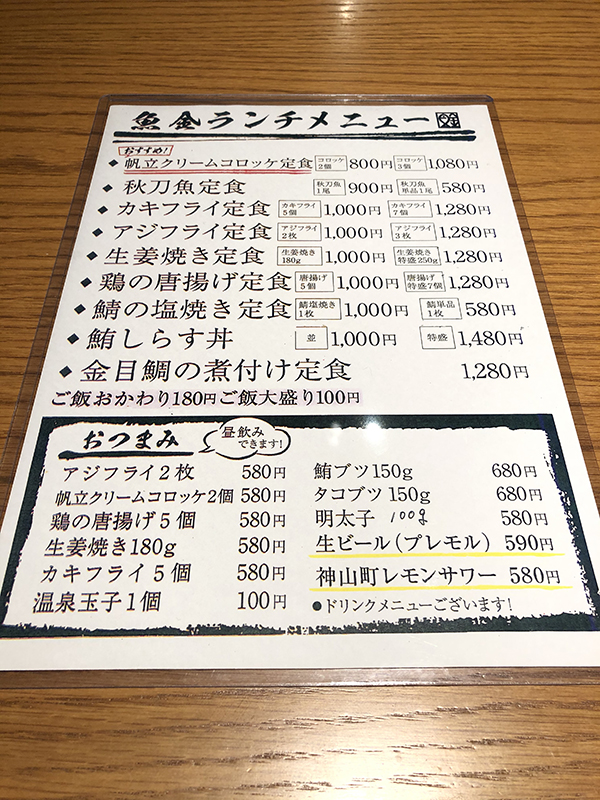 魚金ランチメニュー 魚金
おすすめ!
◆帆立クリームコロッケ定食 コロッケ2個 800円 コロッケ3個 1,080円
◆秋刀魚定食 秋刀魚1尾 900円 秋刀魚単品1尾 580円
◆カキフライ定食 カキフライ5個 1,000円 カキフライ7個 1,280円
◆アジフライ定食 アジフライ2枚 1,000円 アジフライ3枚 1,280円
◆生姜焼き定食 生姜焼き180g 1,000円 生姜焼き特盛250g 1,280円
◆鶏の唐揚げ定食 唐揚げ5個 1,000円 唐揚げ特盛7個 1,280円
◆鯖の塩焼き定食 鯖塩焼き1枚 1,000円 鯖単品1枚 580円
◆鮪しらす丼 並 1,000円 特盛 1,480円
◆金目鯛の煮付け定食 1,280円
ご飯おかわり180円ご飯大盛り100円
おつまみ
昼飲み
できます!
アジフライ2枚 580円
帆立クリームコロッケ2個 580円
鶏の唐揚げ5個 580円
生姜焼き180g 580円
カキフライ5個 580円
温泉玉子1個 100円
鮪ブツ150g 680円
タコブツ150g 680円
明太子 100g 580円
生ビール(プレモル) 590円
神山町レモンサワー 580円
●ドリンクメニューございます!